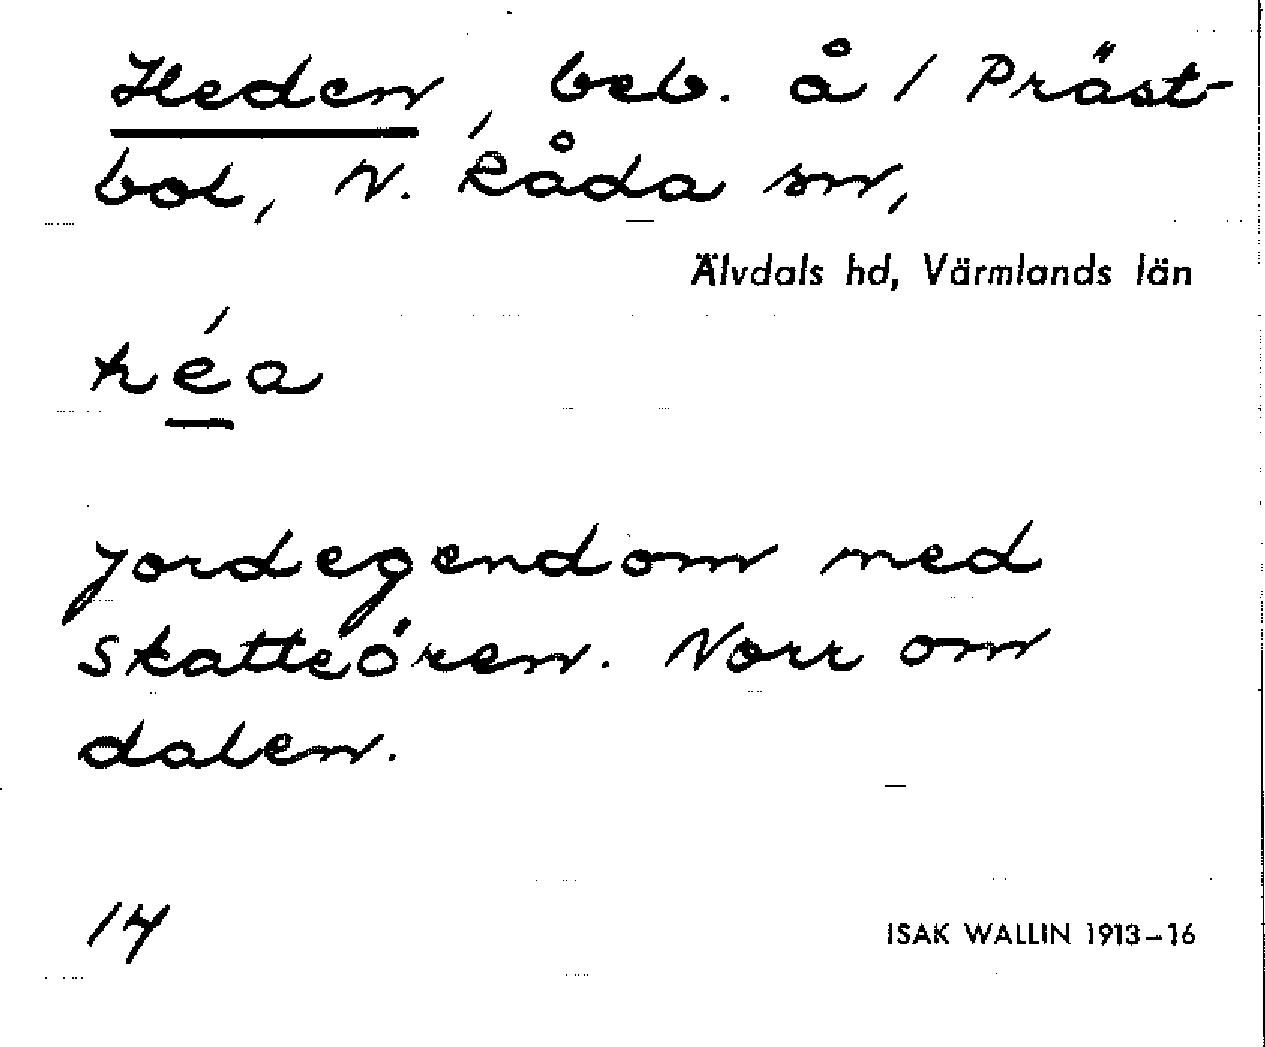 Heden, beb. å 1 Präst-
bol, N. Råda sn,
Älvdals hd, Värmlands län
héa
Jordegendom med
Skatteören. Norr om
dalen.
14
ISAK WALLIN 1913–16